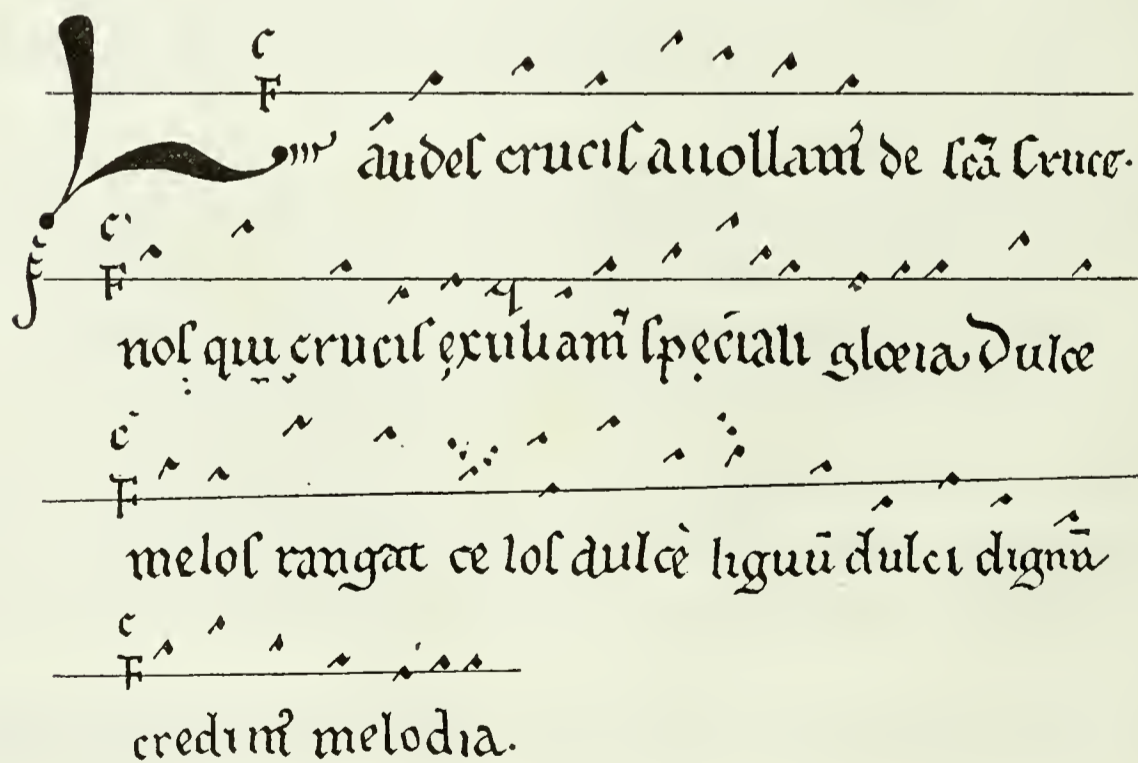 C
F
Laudeſ cruciſ attollamꝰ de ſcã Cruce.
C
F
noſ qui cruciſ exultamꝰ ſpeciali gloria Dulce
C
F
meloſ tangat ce loſ dulcè lignũ dulci dignũ
C
F
credimꝰ melodia.